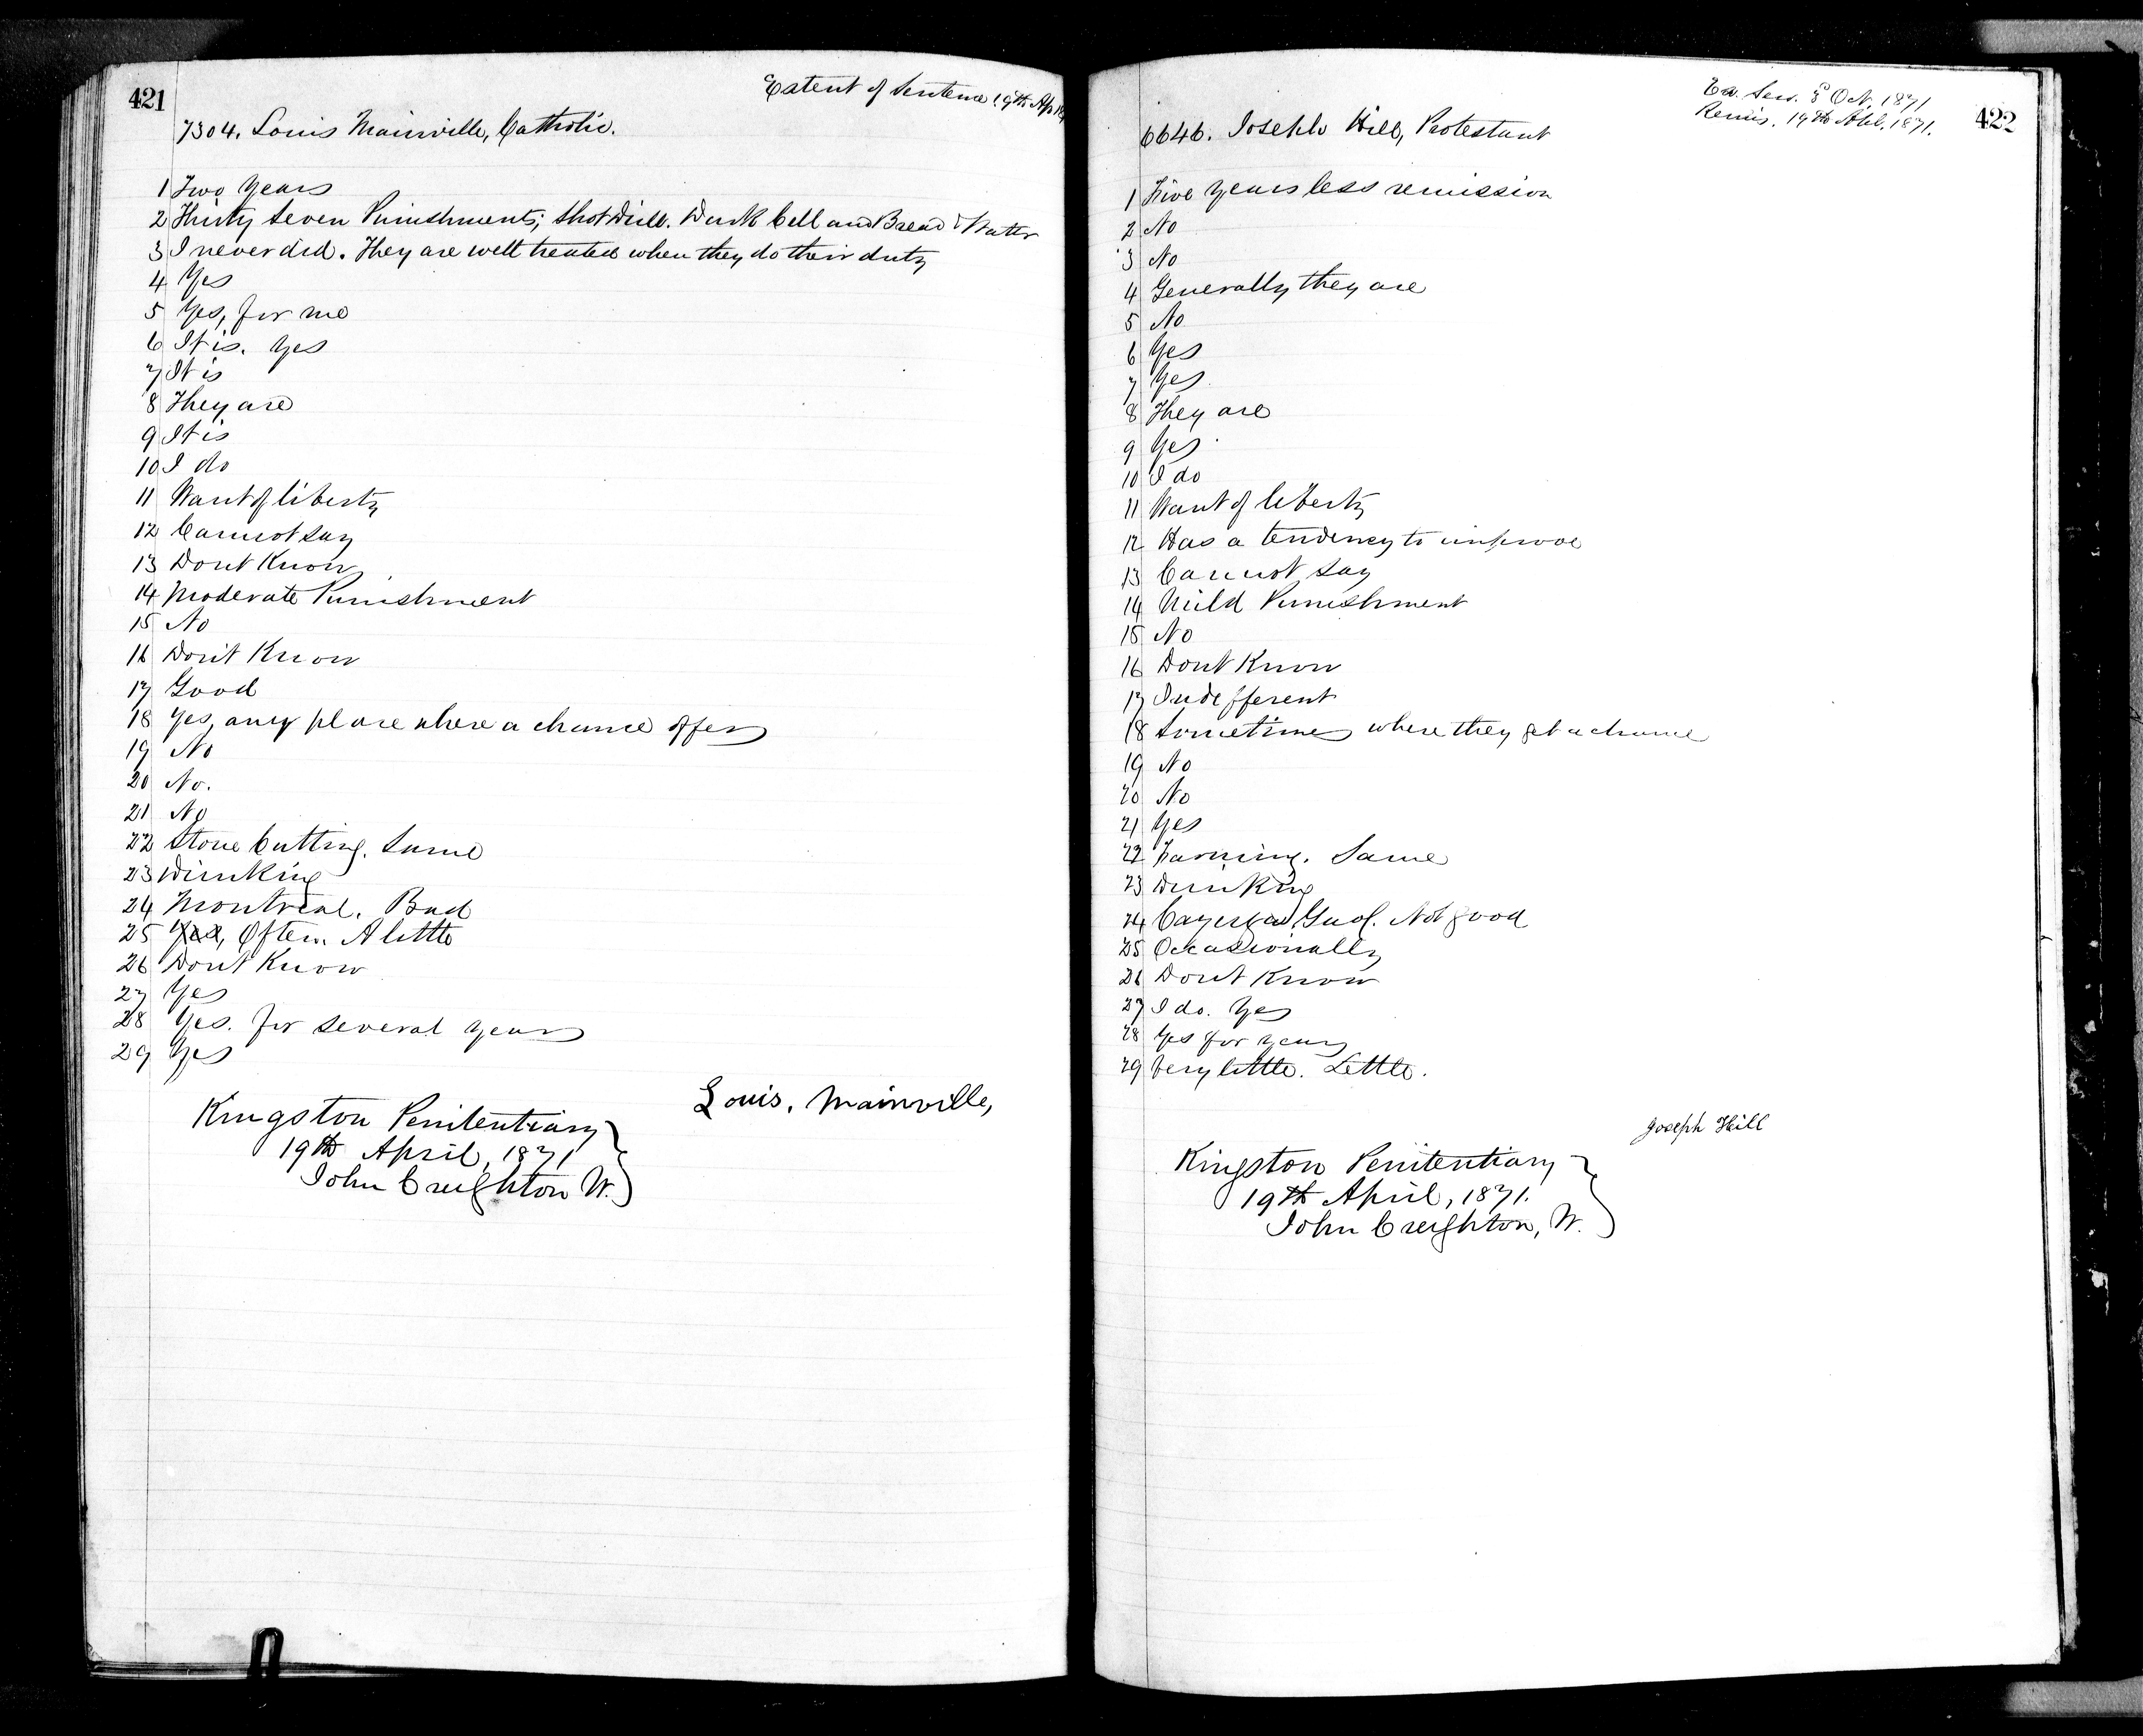 421
Extent of Sentence 19th Ap
7304. Louis Mainville, Catholic.
1 Two years
2 Thirty Seven Punishments; Shot Drill. Dark Cell and Bread & Water
3 I never did. They are well treated when they do their duty
4 Yes
5 Yes, for me
6 It is. Yes
7 It is
8 They are
9 It is
10 I do
11 Want of liberty
12 Cannot say
13 Dont Know
14 Moderate Punishment
15 No
16 Don't Know
17 Good
18 Yes, any place where a chance offers
19 No
20 No.
21 No
22 Stone Cutting. Same
23 Drinking
24 Montreal. Bad
25 Yes, Often. A little
26 Dont Know
27 Yes
28 Yes. for several years
29 Yes
Louis, Mainville,
Kingston Penitentiary
19th April, 1871
John Creighton W.
422
Ex. Sen. 8 Oct. 1871
Remis. 19th Apl. 1871.
6646. Joseph Hill, Protestant
1 Five years less remission
2 No
3 No
4 Generally they are
5 No
6 Yes
7 Yes.
8 They are
9 Yes
10 I do
11 Want of liberty
12 Has a tendency to improve
13 Cannot say
14 Mild Punishment
15 No
16 Dont Know
17 Indefferent
18 Sometimes where they get a chance
19 No
20 No
21 Yes
22 Farming. Same
23 Drinking
24 Cayuga Gaol. Not good
25 Occasionally
26 Dont Know
27 I do. Yes
28 Yes for years
29 Very little. Little.
Joseph Hill
Kingston Penitentiary
19th April, 1871.
John Creighton, W.